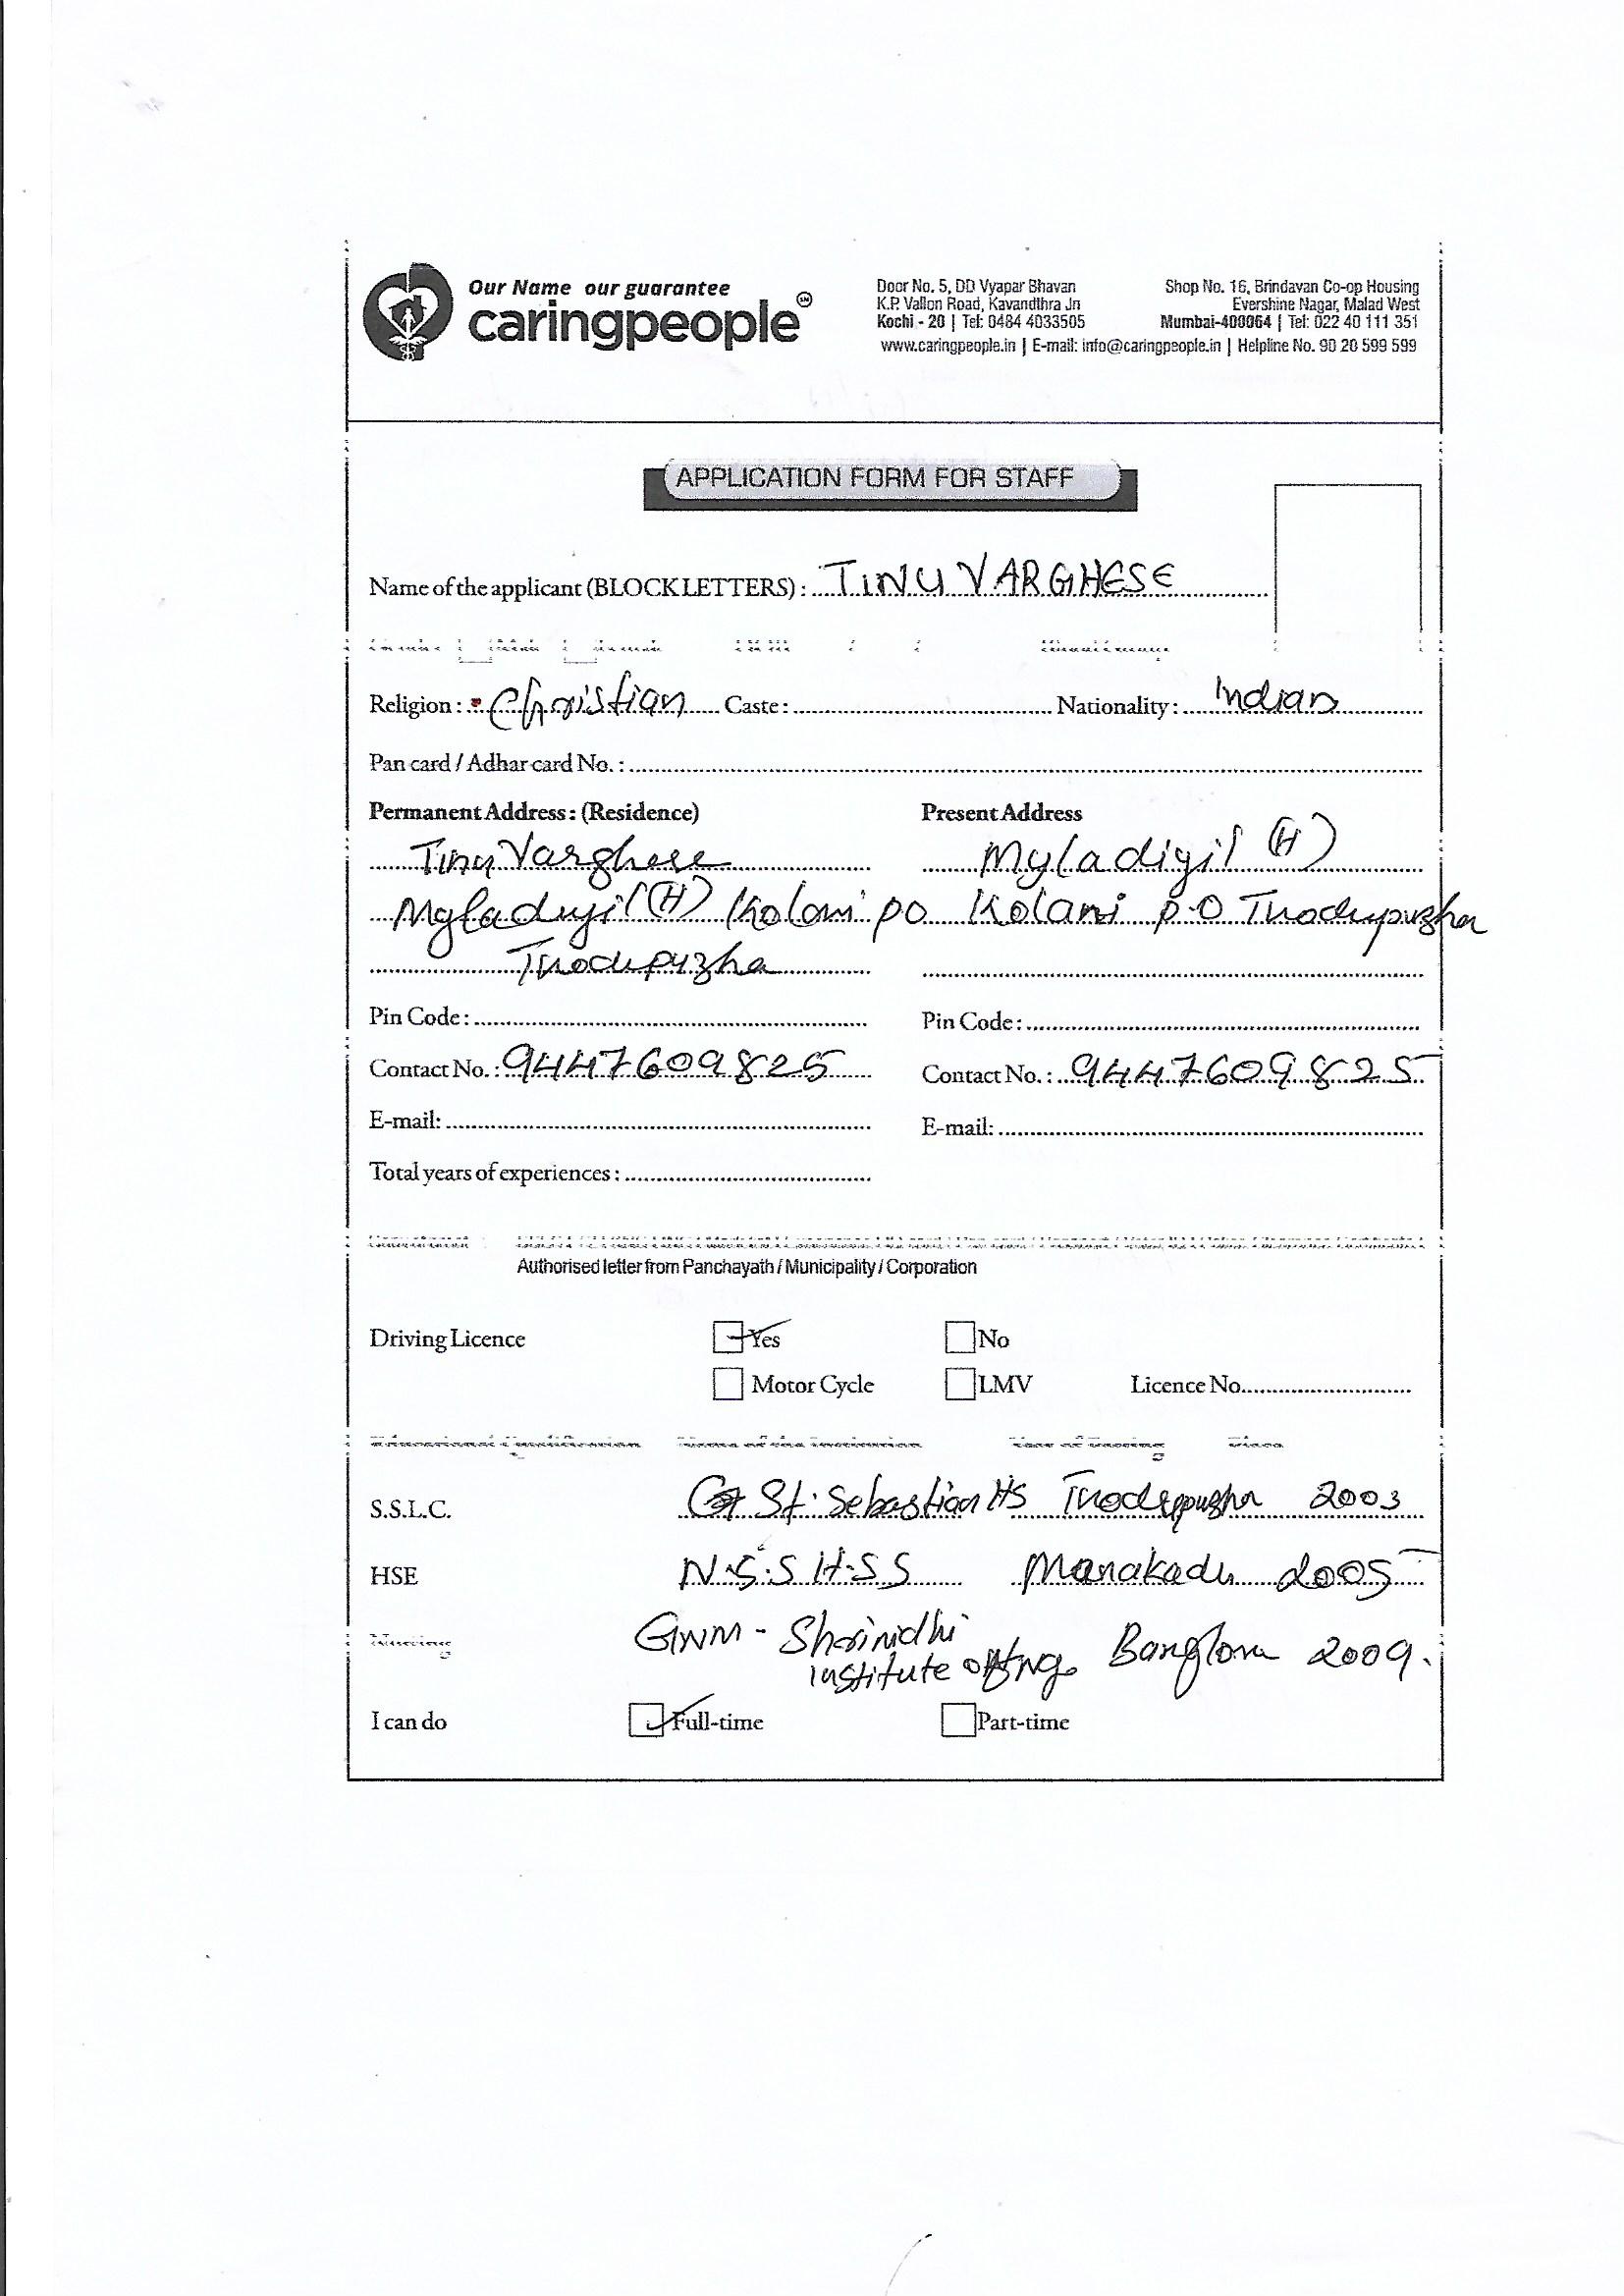 Our Name our guarantee
caringpeople SM
Door No. 5, DD Vyapar Bhavan
K.P. Vallon Road, Kavandthra Jn
Kochi - 20 | Tel: 0484 4033505
Shop No. 16, Brindavan Co-op Housing
Evershine Nagar, Malad West
Mumbai-400064 | Tel: 022 40 111 351
www.caringpeople.in | E-mail: info@caringpeople.in | Helpline No. 90 20 599 599
APPLICATION FORM FOR STAFF
Name of the applicant (BLOCK LETTERS) : TINU VARGHESE
Religion : Christian Caste : Nationality : Indian
Pan card / Adhar card No. :
Permanent Address : (Residence) Present Address
Tinu Varghese Myladiyil (H)
Myladiyil (H) Kolani po Kolani p.o Thodupuzha
Thodupuzha
Pin Code : Pin Code :
Contact No. : 9447609825 Contact No. : 9447609825
E-mail: E-mail:
Total years of experiences :
Authorised letter from Panchayath / Municipality / Corporation
Driving Licence Yes No
Motor Cycle LMV Licence No.
S.S.L.C. St. Sebastian HS Thodupuzha 2003
HSE N.S.S H.S.S Manakadu 2005
GNM - Shrinidhi
institute of Nsg. Banglore 2009.
I can do Full-time Part-time